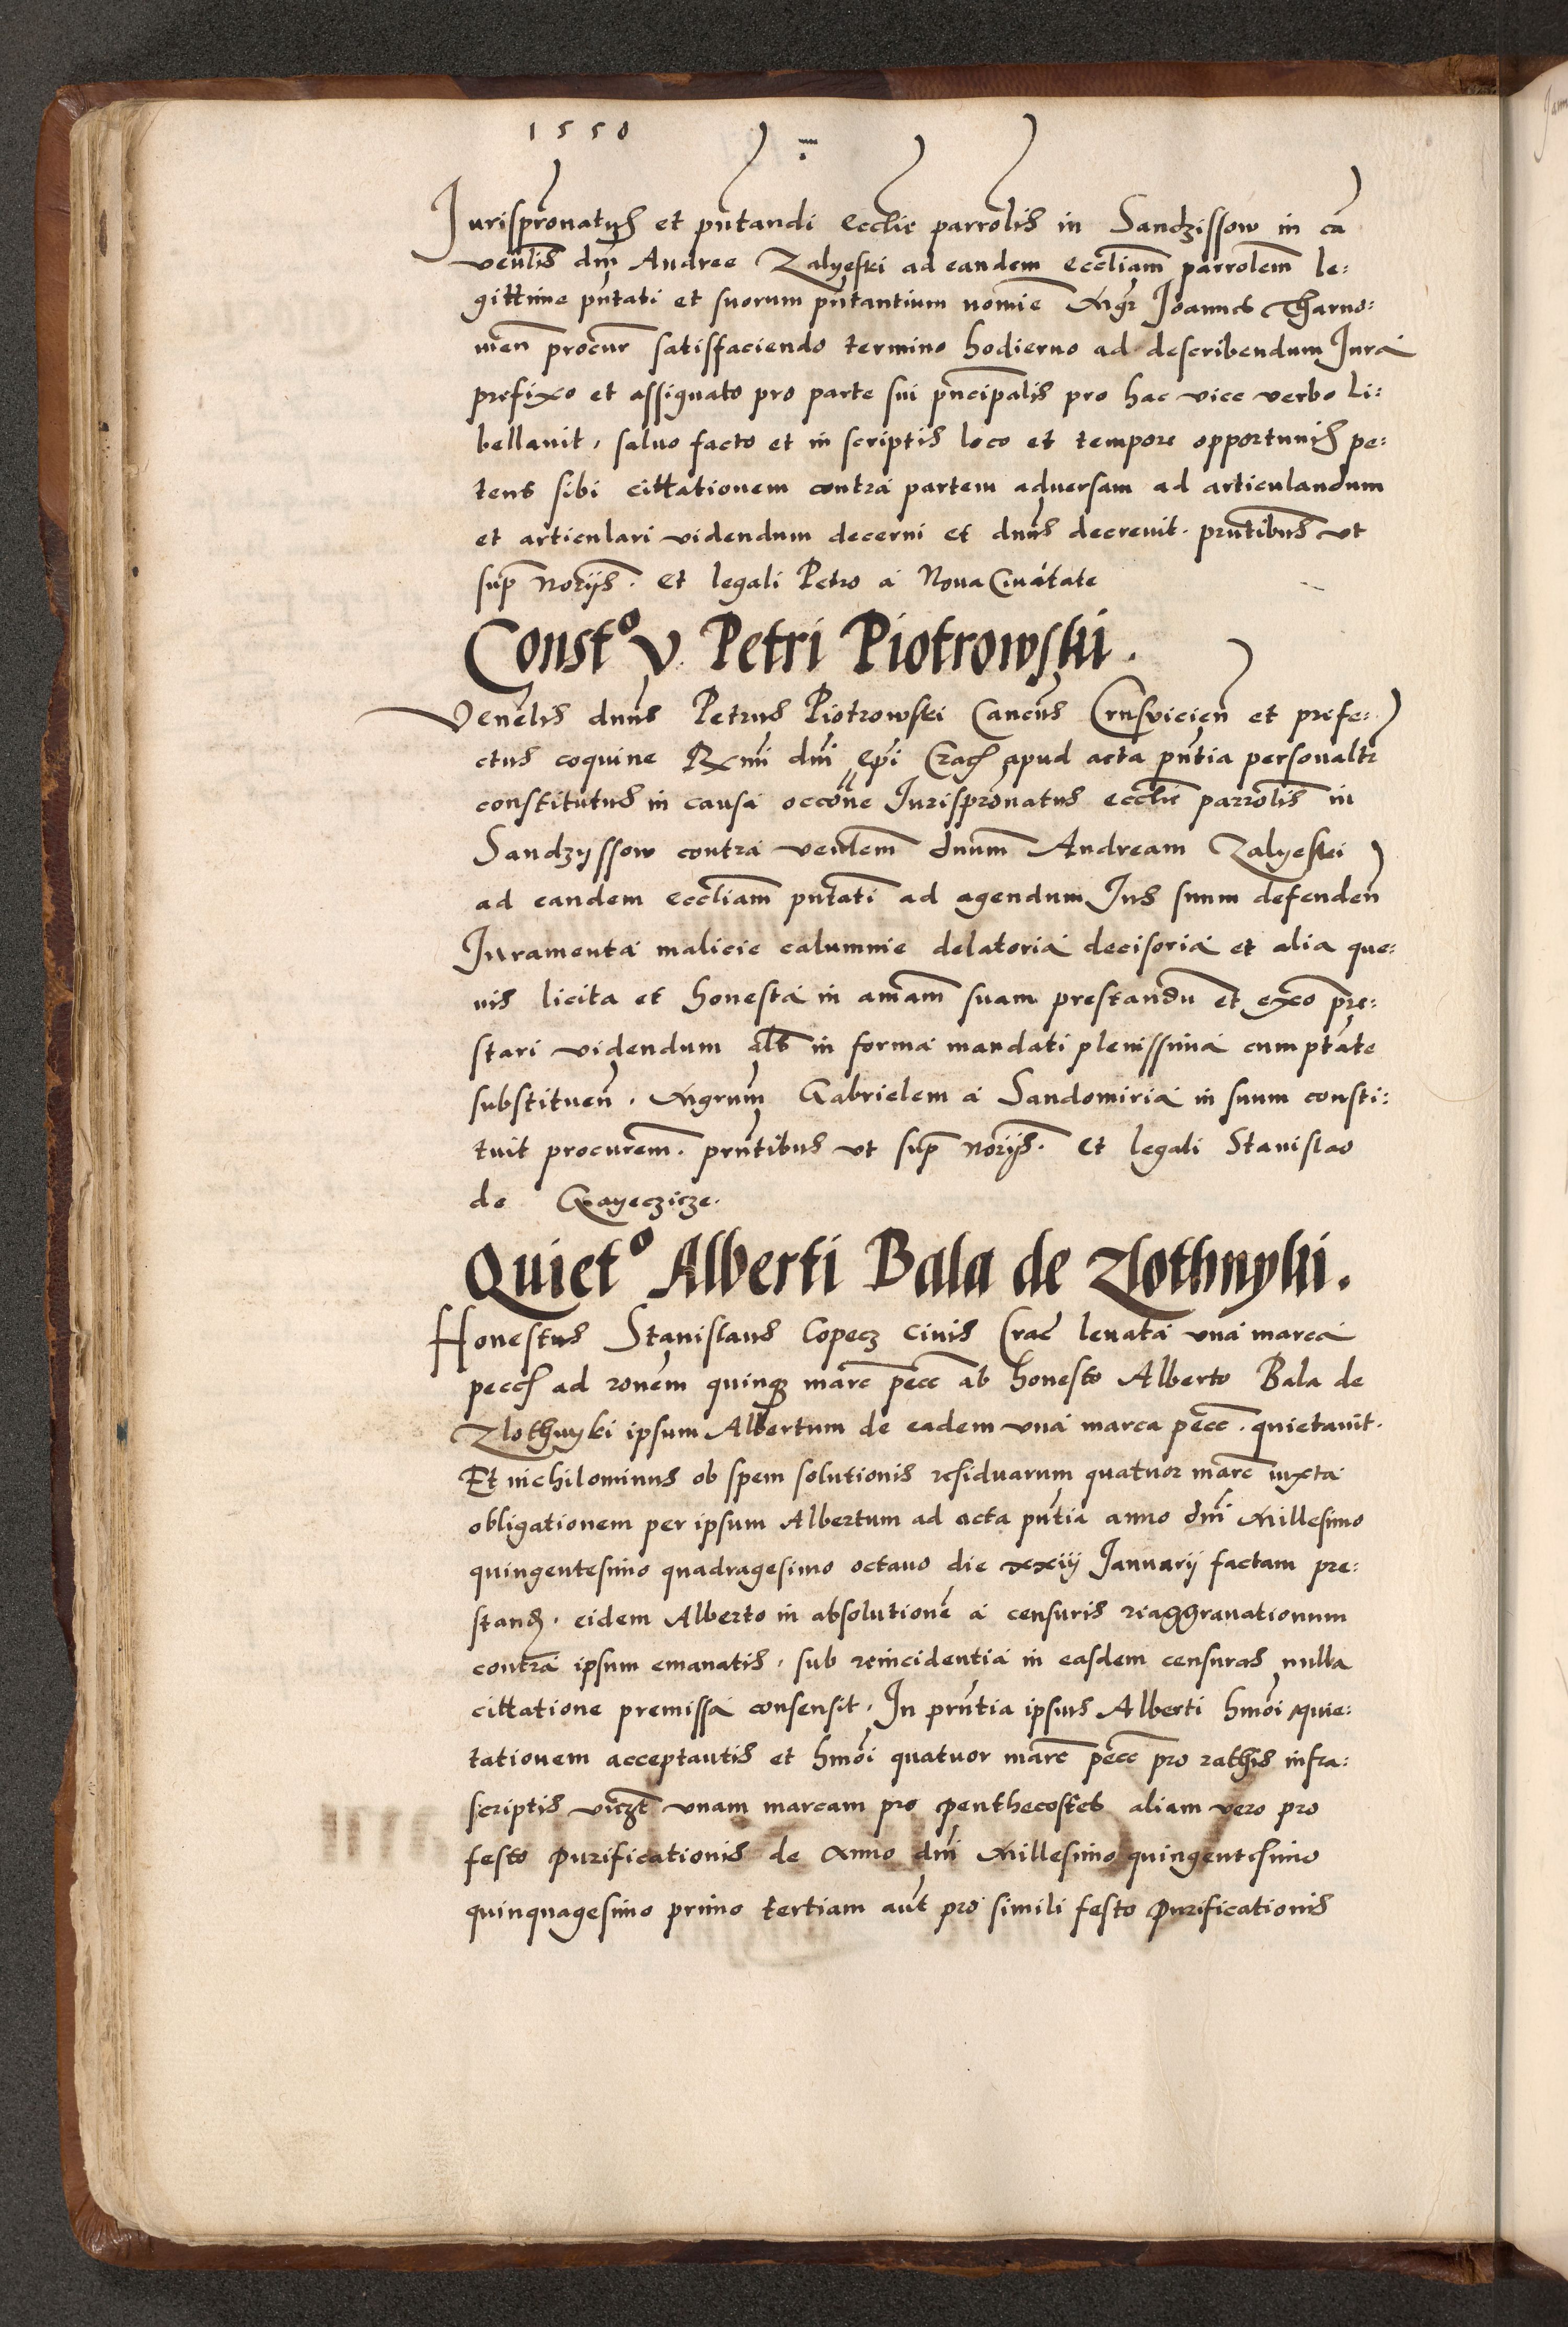 1550
Jurispronatus et pntandi Ecclie parrolis in Sandzissow in ca
venlis dni Andree Zalyeski ad eandem eccliam parrolem le:
gittime pntati et suorum pntantium nomie Mgr Joannes Tharno:
vien procur satisfaciendo termino hodierno ad describendum Jura
prefixo et assignato pro parte sui pncipalis pro hac vice verbo li:
bellavit, salvo facto et in scriptis loco et tempore opportunis pe:
tens sibi cittationem contra partem adversam ad articulandum
et articulari videndum decerni et dnus decrevit. prntibus ut
sup noriis. Et legali Petro a Nova Civitate
Const° V. Petri Piotrowski.
Venelis dnus Petrus Piotrowski Cancus Crusvicien et prefe:
ctus coquine Rxmi dni Epi Crac apud acta pntia personaltr
constitutus in causa occone Jurispronatus ecclie parrolis in
Sandzyssow contra venlem dnum Andream Zalyeski
ad eandem eccliam pntati ad agendum Jus suum defenden
Juramenta malicie calumnie delatoria decisoria et alia que:
vis licita et honesta in amam suam prestandu et exo pre:
stari videndum als in forma mandati plenissima cum ptate
substituen. Mgrum Gabrielem a Sandomiria in suum consti:
tuit procurem. prntibus ut sup noriis. Et legali Stanislao
de Gayeczicze.
Quiet° Alberti Bala de Zlothnyki.
Honestus Stanislaus Copecz Civis Crac levata una marca
pecc ad ronem quinqz marc pecc ab honesto Alberto Bala de
Zlothnyki ipsum Albertum de eadem una marca pecc. quietavit.
Et nichilominus ob spem solutionis residuarum quatuor marc iuxta
obligationem per ipsum Albertum ad acta pntia anno dni Millesimo
quingentesimo quadragesimo octavo die xxiij Januarij factam pre:
stand. eidem Alberto in absolutione a censuris reaggravationum
contra ipsum emanatis, sub reincidentia in easdem censuras nulla
cittatione premissa consensit. In prntia ipsius Alberti hmoi quie:
tationem acceptantis et hmoi quatuor marc pecc pro rathis infra:
scriptis viczt unam marcam pro Penthecostes aliam vero pro
festo Purificationis de Anno dni Millesimo quingentesimo
quinquagesimo primo tertiam aut pro simili festo Purificationis